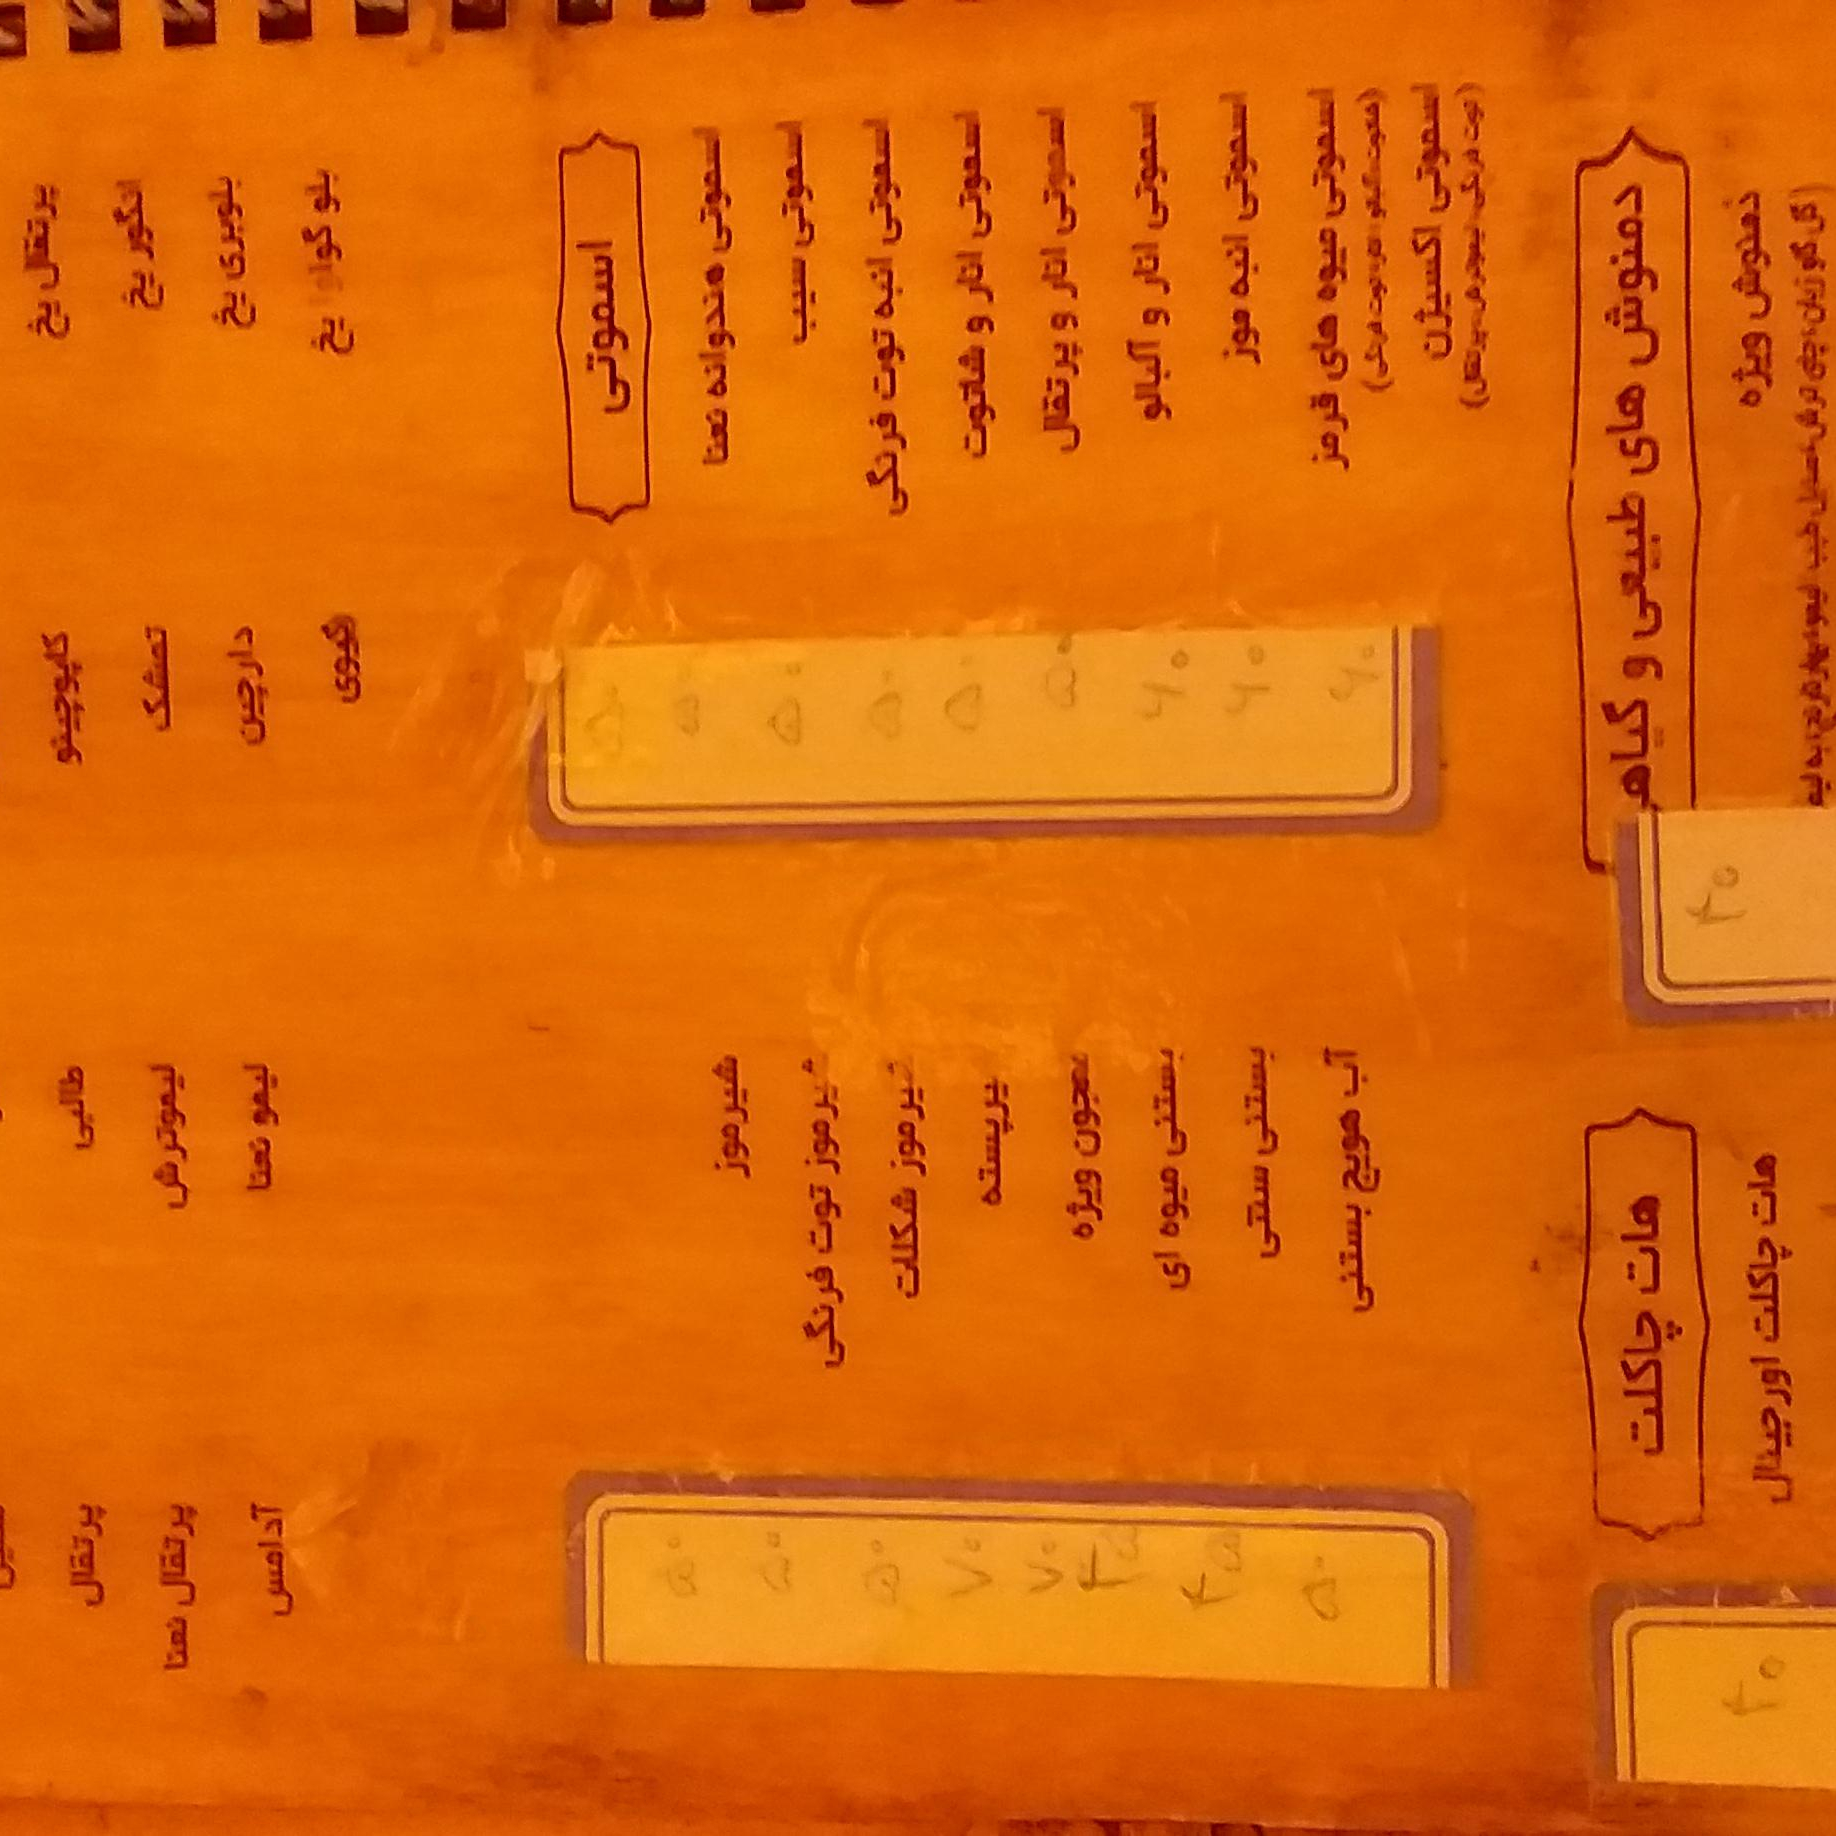 پرتقال یخ
انگور یخ
بلوبری یخ
کاپوچینو
تمشک
دارچین
کیوی
طالبی
لیموترش
لیمو نعنا
پرتقال
پرتقال نعنا
آدامس
اسموتی
اسموتی هندوانه نعنا
اسموتی سیب
اسموتی انبه توت فرنگی
اسموتی انار و شاتوت
اسموتی انار و پرتقال
اسموتی انار و آلبالو
اسموتی انبه موز
اسموتی میوه های قرمز
اسموتی اکسیژن
۵۰
۵۰
۵۰
۵۰
۵۰
۵۰
۶۰
۶۰
۶۰
شیرموز
شیرموز توت فرنگی
شیرموز شکلات
شیرپسته
معجون ویژه
بستنی میوه ای
بستنی سنتی
آب هویج بستنی
۵۰
۵۰
۵۰
۷۰
۷۰
۴۵
۴۵
۵۰
دمنوش های طبیعی و گیاهی
دمنوش ویژه
۴۰
هات چاکلت
هات چاکلت اورجینال
۴۰